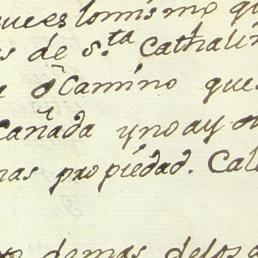 que es lo mismo qu
s de S.ta Cathalin
Camino que
Cañada y no ay o
mas propiedad. Cal
demas delos a